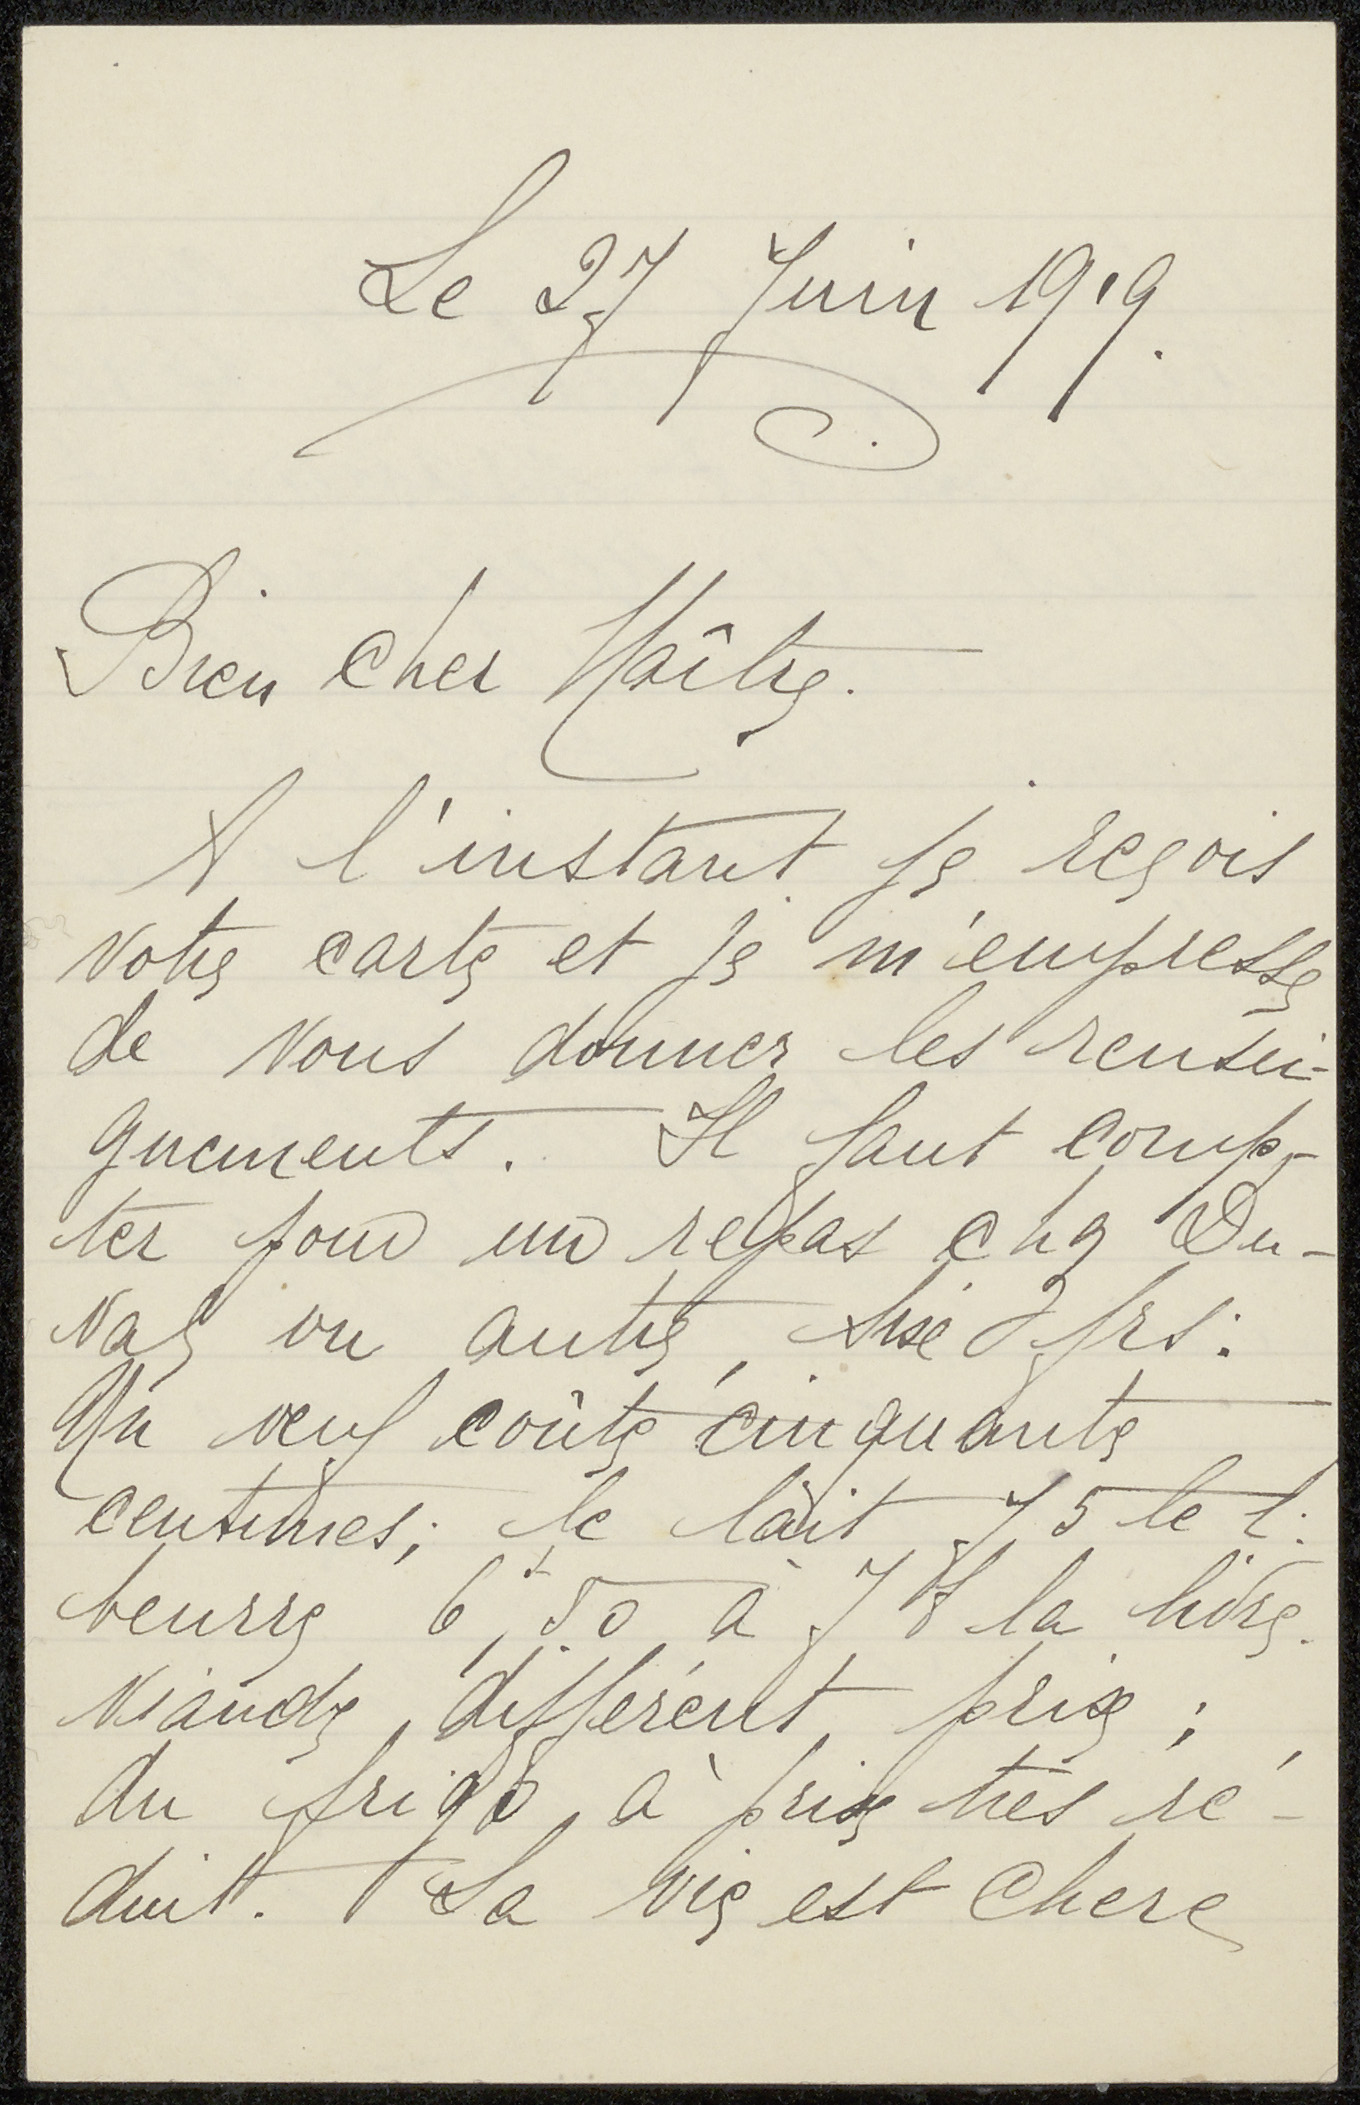 Le 27 Juin 1919.
Bien cher Maître.
A l'instant je reçois
votre carte et je m'empresse
de vous donner les rensei-
gnements. Il faut comp-
ter pour un repas chez Du-
val ou autre, frs:
Un oeuf coûte cinquante
centimes; le lait 75 le l:
beurre 6f,50 à 7f la livre.
viande, différent prix;
du frigo, à prix très ré-
duit. La vie est chere